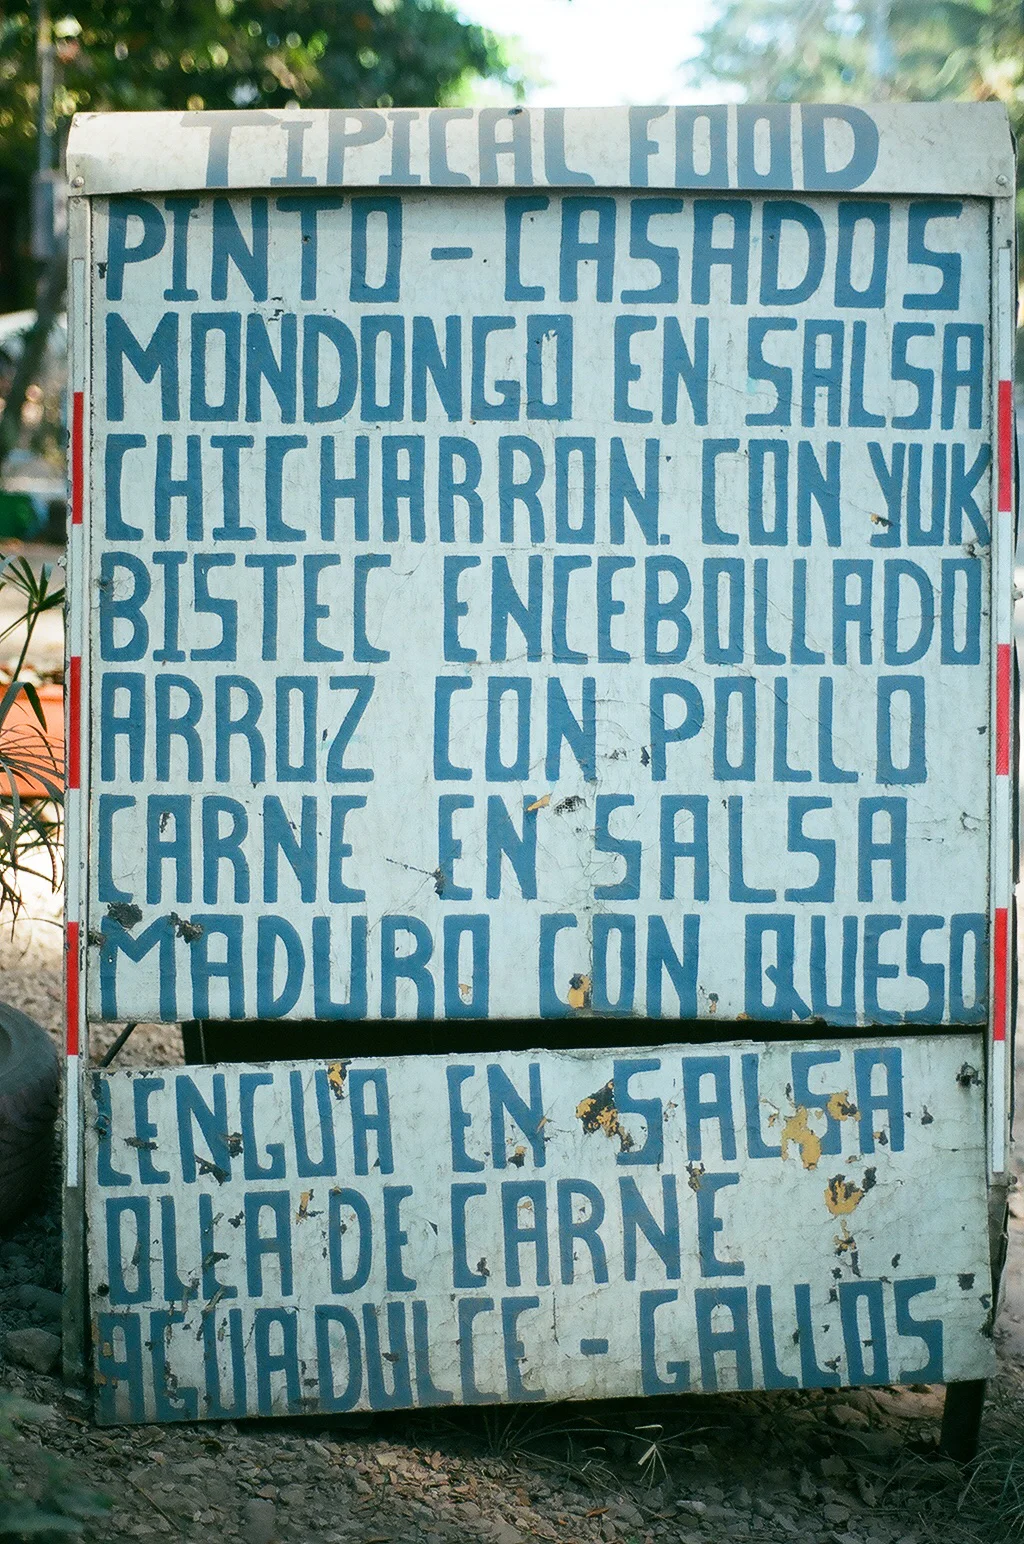 TIPICAL FOOD
PINTO - CASADOS
MONDONGO EN SALSA
CHICHARRON. CON YUK
BISTEC ENCEBOLLADO
ARROZ CON POLLO
CARNE EN SALSA
MADURO CON QUESO
LENGUA EN SALSA
OLLA DE CARNE
AGUADULCE - GALLOS